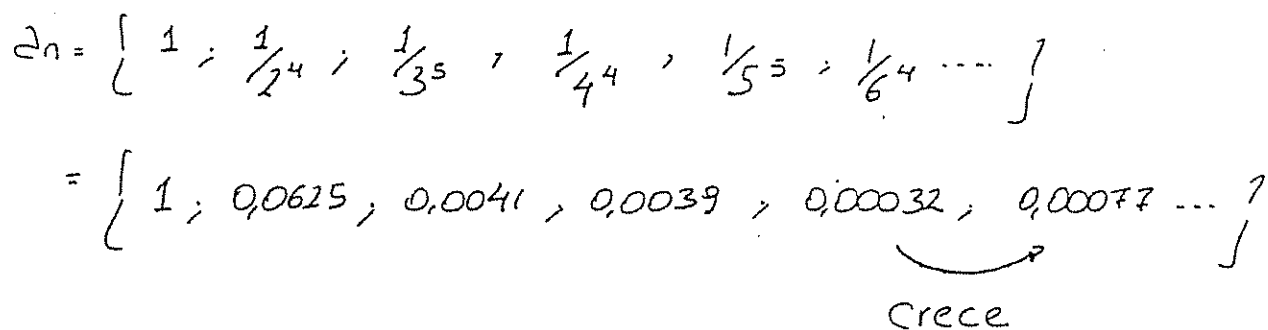 an = { 1 ; 1/2⁴ ; 1/3⁵ , 1/4⁴ , 1/5⁵ , 1/6⁴ .... }
= { 1 ; 0,0625 ; 0,0041 , 0,0039 , 0,00032 ; 0,00077 ... }
crece